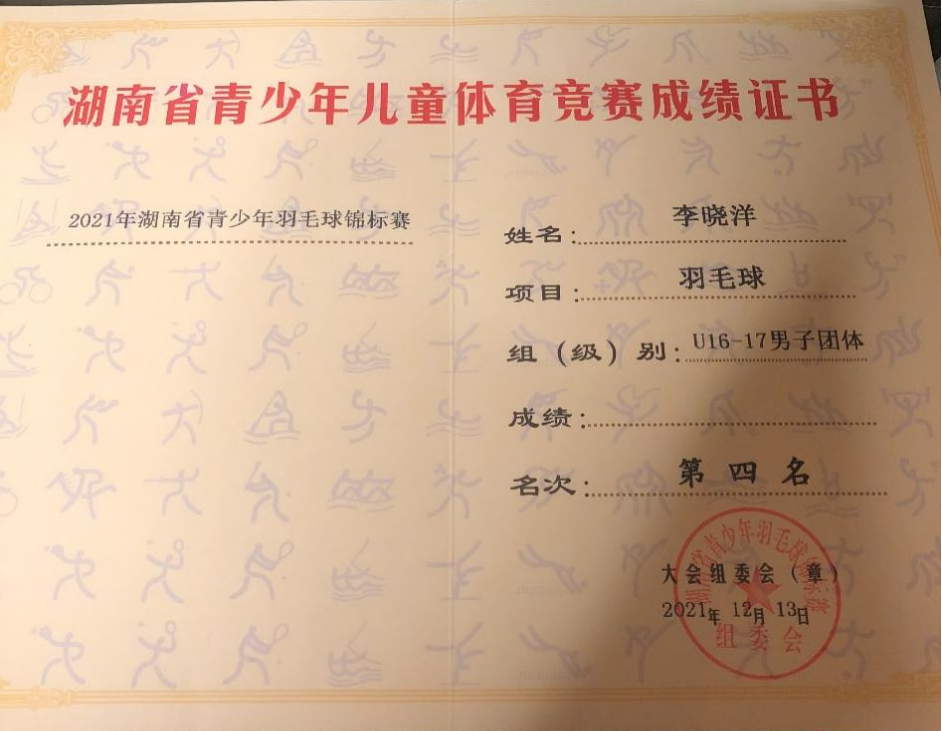 湖南省青少年儿童体育竞赛成绩证书
2021年湖南省青少年羽毛球锦标赛
姓名：李晓洋
项目：羽毛球
组（级）别：U16-17男子团体
成绩：
名次：第四名
大会组委会（章）
2021年12月13日
湖南省青少年羽毛球锦标赛
组委会